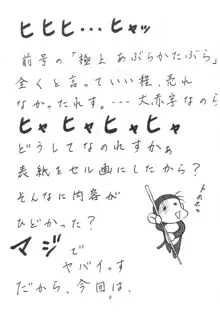 ヒヒヒ…ヒャッ
前号の「極上あぶらかたぶら」
全くと言っていい程、売れ
なかったれす。---大赤字なのら
ヒャヒャヒャヒャ
どうしてなのれすかぁ
表紙をセル画にしたから？
そんなに内容が
ひどかった？
マジで
ヤバイっす
だから、今回は、
2